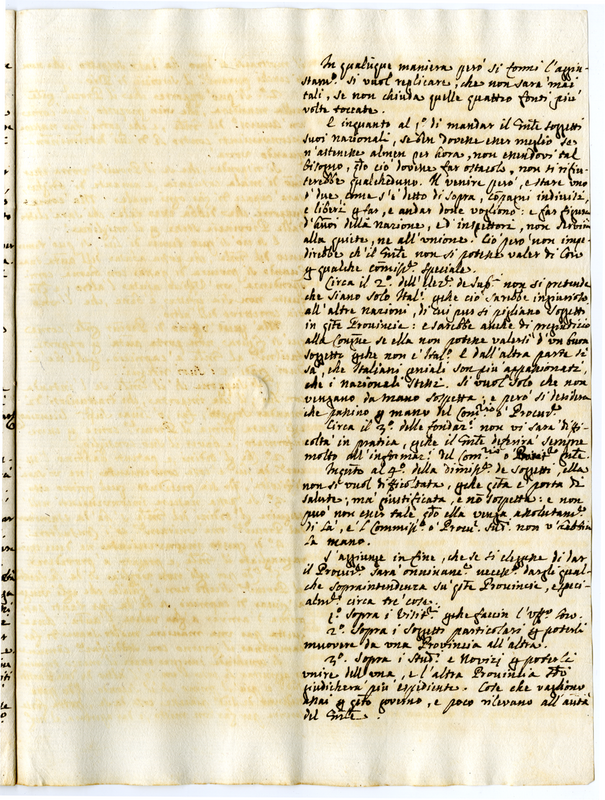 In qualunque maniera però si formi l'aggiu-
stamto. si vuol replicare, che non sarà mai
tali, se non chiuda quelle quattro fonti più
volte toccate.
E inquanto al 1o. di mandar il Gnle soggetti
suoi nazionali, seben dovesse esser meglio se
n'astenesse almen per hora, non essendovi tal
bisogno, qdo ciò dovesse far ostacolo, non ti rifiu-
terebbe qualcheduno. Il venire però, e stare uno
ò due come s'è detto di sopra, indicise,
e liberi far, e andar dove vogliono: e far figura
della nazione, ed inspettori, non servirà
alla quiete, ne all'unione. Ciò però non impe-
direbbe ch'il Gnle non si potesse valer di loro
qualche comisse. speciale.
Circa il 2o. dell'elezne. de Supri non si pretende
che siano solo Itali. che ciò sarebbe ingiurioso
all'altre nazioni, di cui pur si pigliano soggetti
in qste Provincie: e sarebbe anche di pregiudizio
alla se ella non potesse valersi d'un buon
soggetto che non è Italo. E dall'altra parte si
sà, che Italiani geniali son più appassionati,
che i nazionali stessi. Si vuol solo che non
vengano da mano sospetta; e però si desidera
che passino mano del Comrio ò Procure.
Circa il 3o. delle fondazi. non vi sarà diffi-
coltà in pratica, che il Gnle deferirà sempre
molto all'informaci. del Comrio ò Gnle.
Inqto al 4o. della dimisse. de soggetti, ella
non si vuol difficoltata, che qsta è porta di
salute; mà giustificata, e nō sospetta: e non
può non esser tale qdo ella venga assolutamte.
di là, e'l Commisso. ò Procu. non v'habbia
la mano.
S'aggiunge in fine, che se si eleggesse di dar
il Procure. sarà onninamte. necesso. dargli qual-
che sopraintendenza sù qste Provincie, e speci-
almte. circa trè cose.
1o. Sopra i Visitri. che faccin l'uffo. loro.
2o. Sopra i soggetti particolari poterli
muovere da una Provincia all'altra.
3o. Sopra i Studi. e Novizi poterli
unire dell'una, e l'altra Provincia qdo
giudicherà più espediente. Cose che vagliono
assai qsto governo, e poco rilevano all'autà
del Gnle.